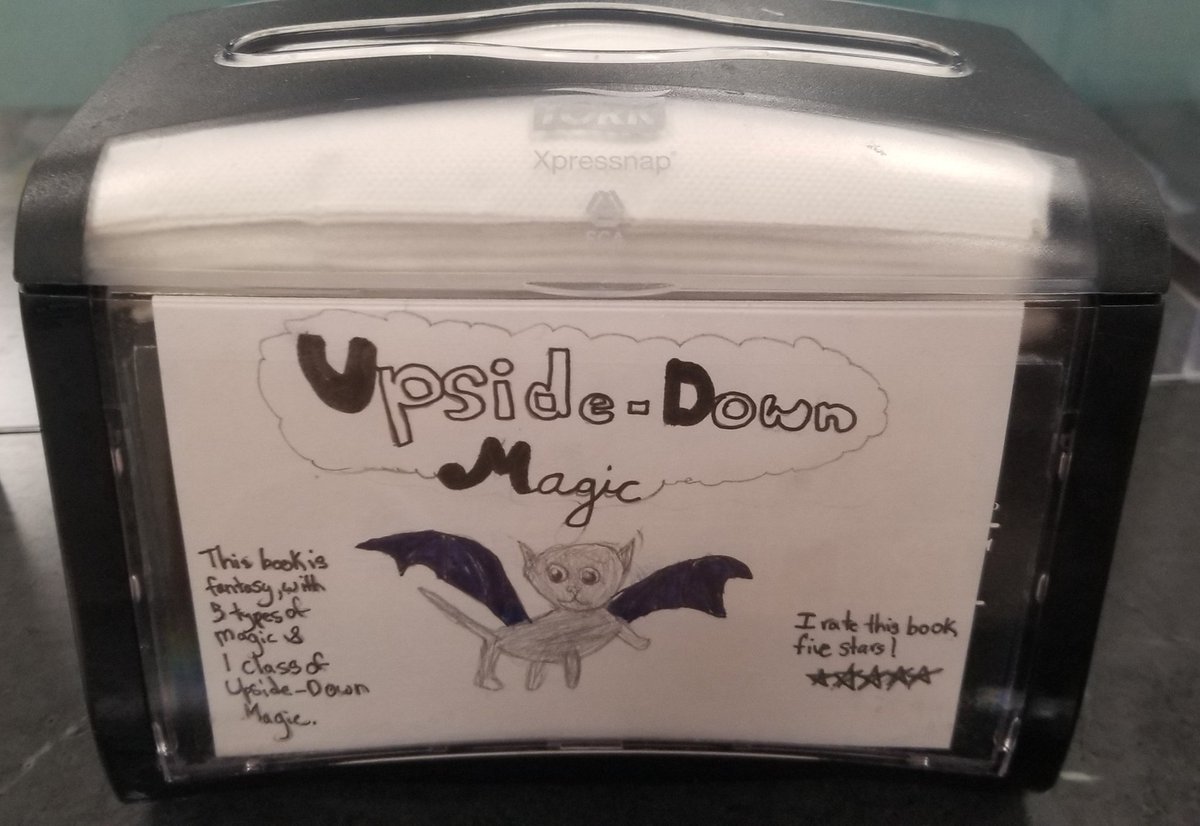 TORK
Xpressnap
SCA
Upside-Down
Magic
This book is
fantasy, with
5 types of
magic &
1 class of
Upside-Down
Magic.
I rate this book
five stars!